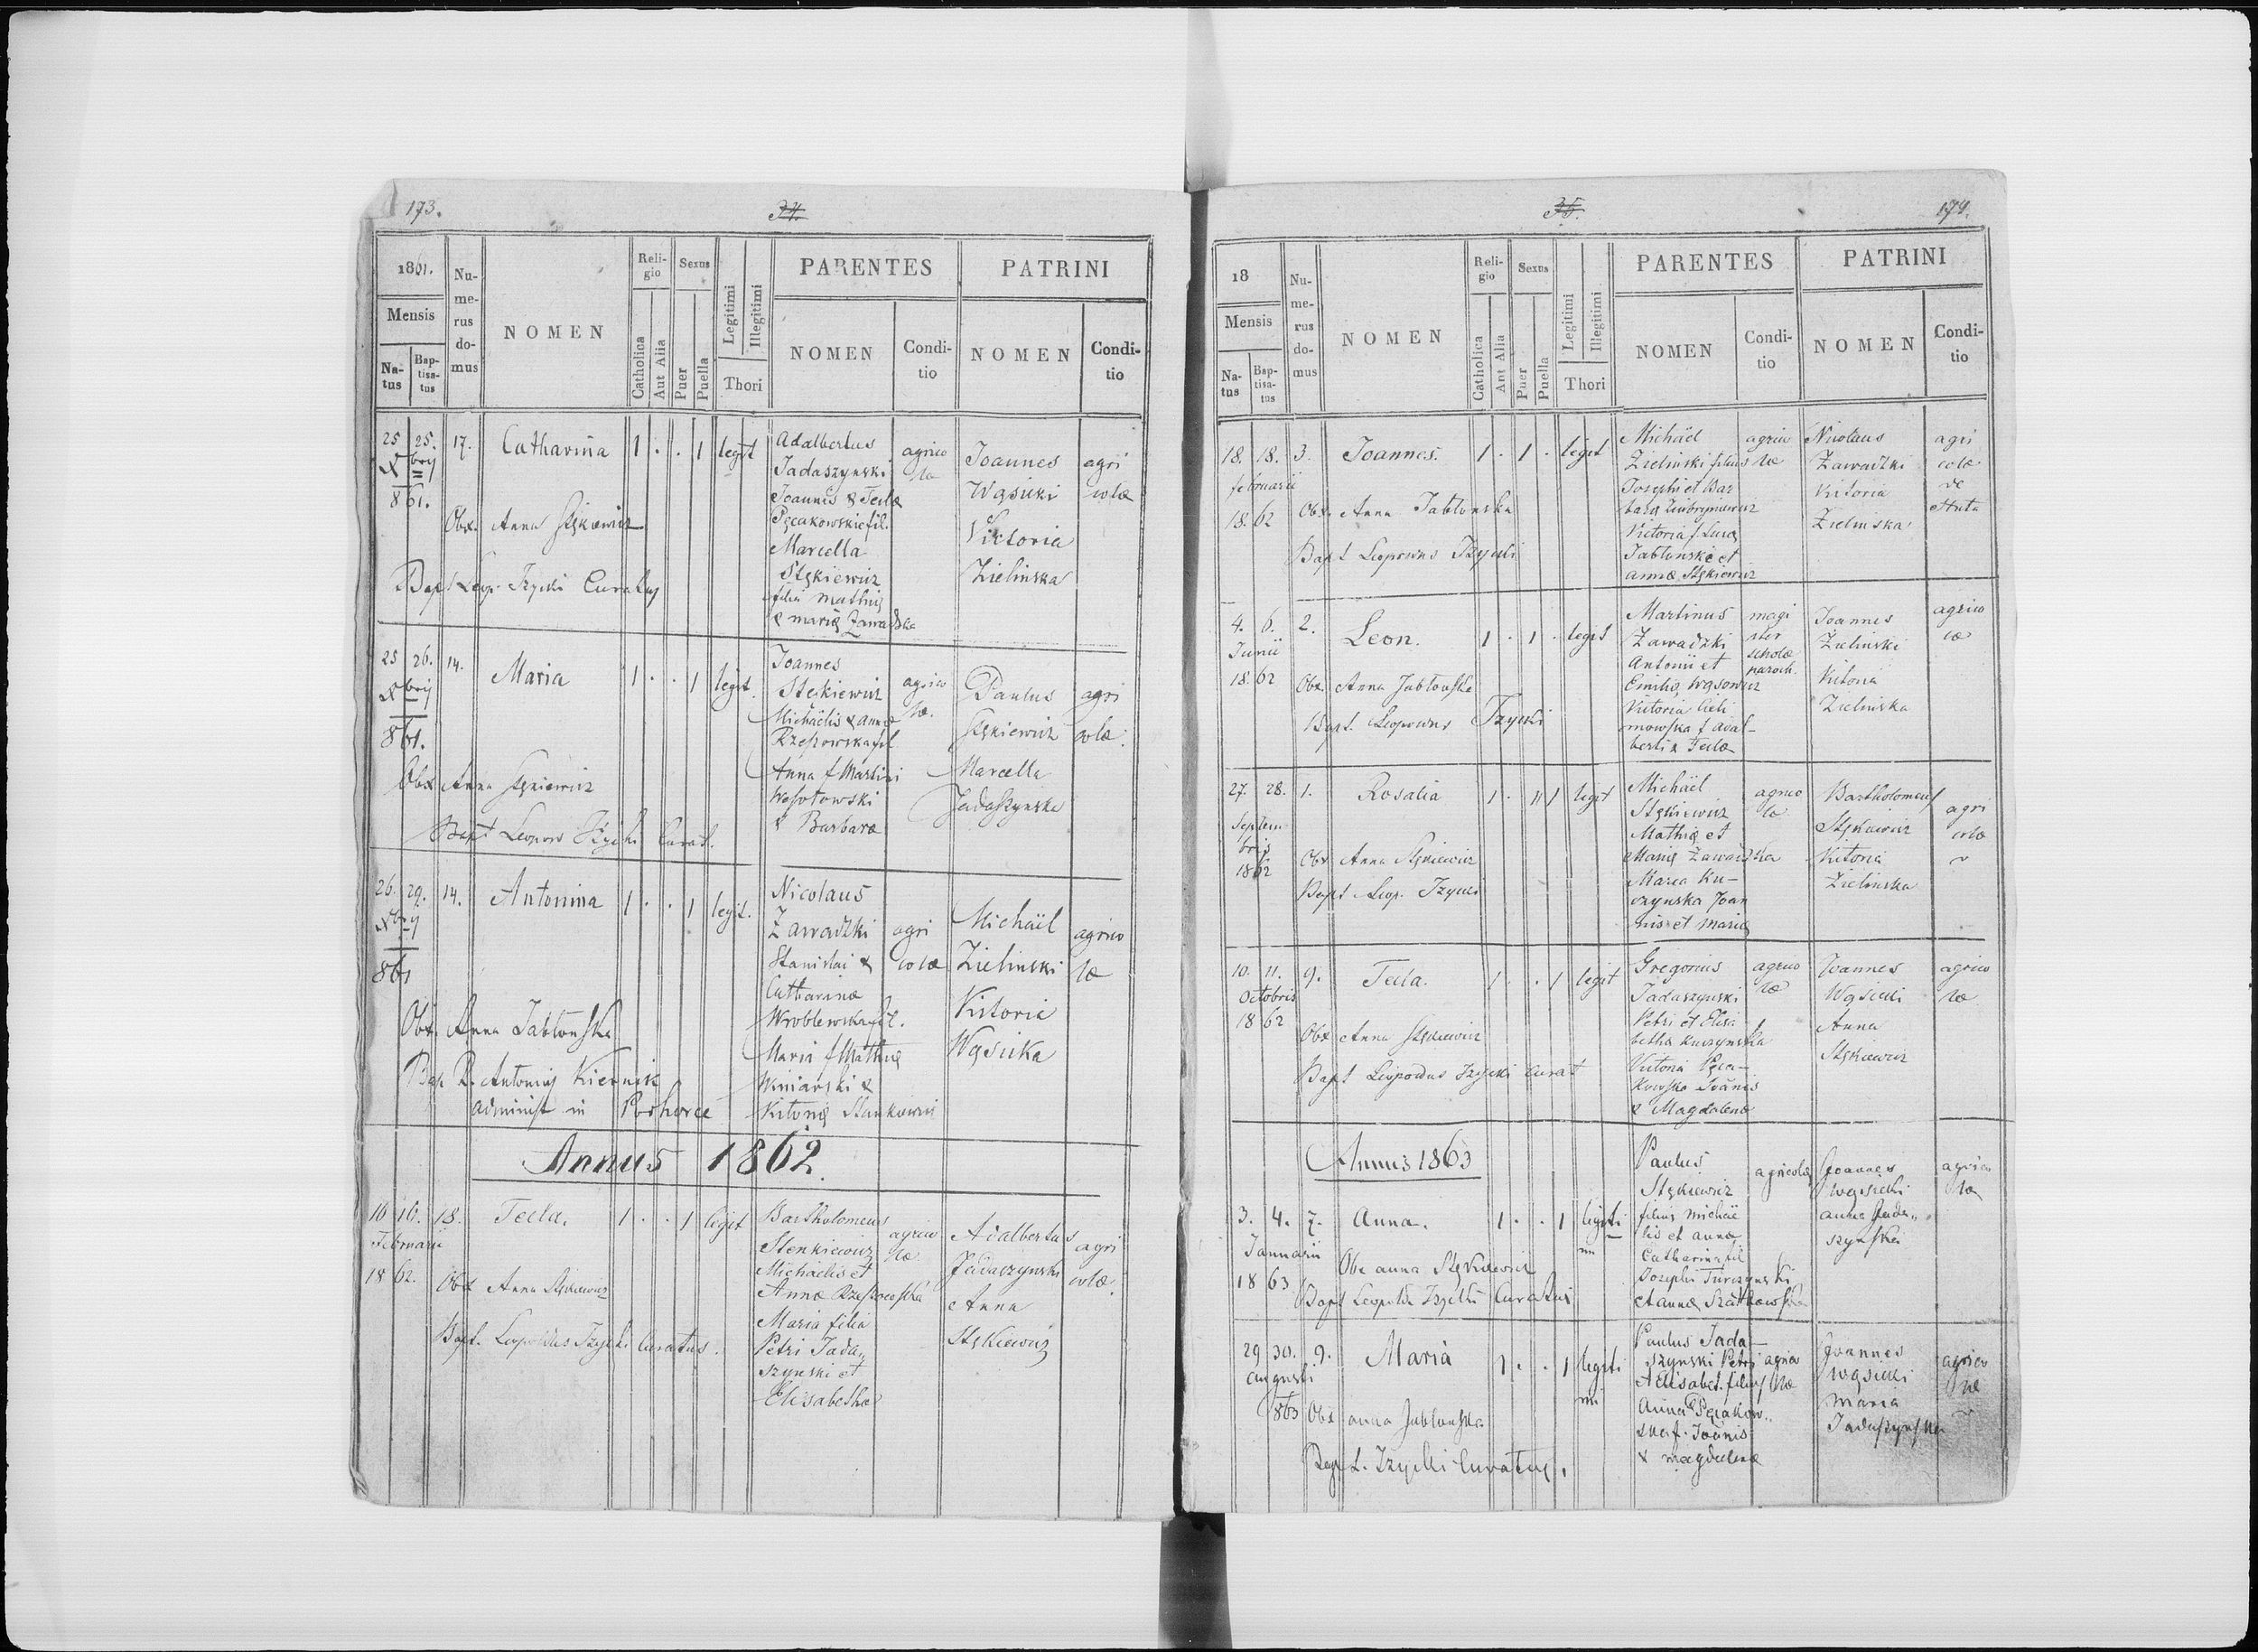 173.
34.
1861.
Mensis
Na-
tus
Bap-
tisa-
tus
Nu-
me-
rus
do-
mus
NOMEN
Reli-
gio
Catholica
Aut Alia
Sexus
Puer
Puella
Legitimi
Illegitimi
Thori
PARENTES
NOMEN
Condi-
tio
PATRINI
NOMEN
Condi-
tio
25 25. 17. Catharina 1 . . 1 legit
Xbrij
861.
Obx. Anna Stękiewicz
Bapt Leop. Izycki Curatus
Adalbertus
Jadaszynski
Joannis & Teclæ
Pęcakowskie fil.
Marcella
Stękiewicz
filia Mathiæ
& mariæ Zawadzka
agrico
læ
Joannes
Wąsicki
Victoria
Zielinska
agri
colæ
25 26. 14. Maria 1 . . 1 legit.
Xbrij
861.
Obx Anna Stękiewicz
Bapt Leopold Izycki Curat.
Joannes
Stękiewicz
Michaëlis & annæ
Rzeszowska fil
Anna f Martini
& Barbaræ
agrico
læ.
Paulus
Stękiewicz
Marcella
Jadaszynska
agri
colæ.
26. 29. 14. Antonina 1 . . 1 legit.
Xbrij
861
Obx. Anna Jabłonska
Bap R. Antonius Kiernik
administ in Podhorce
Nicolaus
Zawadzki
Stanislai &
Catharinæ
Wroblewska fil.
Maria f Mathiæ
Winiarski &
Victoriæ Stankiewicz
agri
colæ
Michaël
Zielinski
Victoria
Wąsicka
agrico
læ
Annus 1862.
16 16. 18. Tecla. 1 . . 1 legit
Februarii
1862.
Obx Anna Stękiewicz
Bapt. Leopoldus Izycki Curatus.
Bartholomeus
Stenkiewicz
Michaelis et
Annæ Rzeszowska
Maria filia
Petri Jada„
szynski et
Elisabethæ
agrico
læ
Adalbertus
Jadaszynski
Anna
Stękiewicz
agri
colæ.
35.
174.
18
Mensis
Na-
tus
Bap-
tisa-
tus
Nu-
me-
rus
do-
mus
NOMEN
Reli-
gio
Catholica
Aut Alia
Sexus
Puer
Puella
Legitimi
Illegitimi
Thori
PARENTES
NOMEN
Condi-
tio
PATRINI
NOMEN
Condi-
tio
18. 18. 3. Joannes. 1 . 1 . legit
februarii
1862
Obx. Anna Jabłonska
Bapt Leopoldus Izycki
Michaël
Zielinski filius
Josephi et Bar
Victoria f. Lucæ
Jabłonski et
annæ Stękiewicz
agrico
læ
Nicolaus
Zawadzki
Victoria
Zielinska
agri
colæ
de
Huta
4. 6. 2. Leon. 1 . 1 . legit
Junii
1862
Obx. Anna Jabłonska
Bapt. Leopoldus Izycki
Martinus
Zawadzki
Antonii et
Emiliæ Wąsowicz
Victoria Cieli
mowska f adal-
berti & Teclæ
magi
ster
scholæ
paroch.
Joannes
Zielinski
Victoria
Zielinska
agrico
læ
27. 28. 1. Rosalia 1 . 1 legit
Septem
bris
1862
Obx Anna Stękiewicz
Bapt Leop. Izycki
Michaël
Stękiewicz
Mathiæ et
Mariæ Zawadzka
Maria Ku-
czynska Joan
nis et mariæ
agrico
læ
Bartholomeus
Stękiewicz
Victoria
Zielinska
agri
colæ
10. 11. 9. Tecla. 1 . . 1 legit
Octobris
1862
Obx Anna Stękiewicz
Bapt Leopoldus Izycki Curat
Gregorius
Jadaszynski
Petri et Elisa
betha Kuczynska
Victoria Pęca-
kowska Joānis
& Magdalenæ
agrico
læ
Joannes
Wąsicki
Anna
Stękiewicz
agrico
læ
Annus 1863
3. 4. 7. Anna. 1 . . 1 legiti
mi
Januarii
1863
Obx anna Stękiewicz
Bapt Leopoldus Izycki Curatus
Paulus
Stękiewicz
filius Michaë
lis et annæ
Catharina fil
Josephi Turczynski
et annæ
agricolæ
Joannes
Wąsicki
anna Jada„
szynska
agrico
læ
29 30. 9. Maria 1 . . 1 legiti
mi
augusti
863
Obx anna Jabłonska
Bapt L. Izycki Curatus.
Paulus Jada-
szynski Petri
& Elisabet. filius
Anna Pęcakow„
ska f. Joānis
& magdalenæ
agrico
læ
Joannes
Wąsicki
Maria
Jadaszynska
agrico
læ